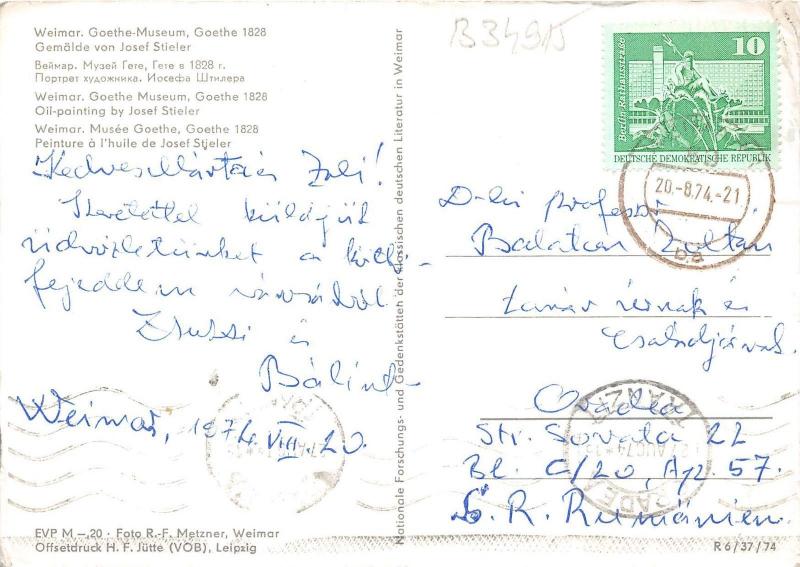 Weimar. Goethe-Museum, Goethe 1828
Gemälde von Josef Stieler
Веймар. Музей Гете, Гете в 1828 г.
Портрет художника. Иосефа Штилера
Weimar. Goethe Museum, Goethe 1828
Oil-painting by Josef Stieler
Weimar. Musée Goethe, Goethe 1828
Peinture à l'huile de Josef Stieler
B 34915
Kedves Márta és Zoli!
Szeretettel küldjük
üdvözletünket a költő-
fejedelem városából
Zsuzsi és
Bálint
Weimar, 1974. VIII. 20.
EVP M –,20 · Foto R.-F. Metzner, Weimar
Offsetdruck H. F. Jütte (VOB), Leipzig
Nationale Forschungs- und Gedenkstätten der klassischen deutschen Literatur in Weimar
10
Berlin Rathausstraße
DEUTSCHE DEMOKRATISCHE REPUBLIK
20.-8.74.-21
ba
D-lui profesor
Balaton Zoltán
tanár úrnak és
Családjának
Oradea
Str. Sovata 22
Bl. C/20, Ap. 57.
S. R. Rumänien
ORADEA
TRANZIT
AUG 74
R 6/37/74